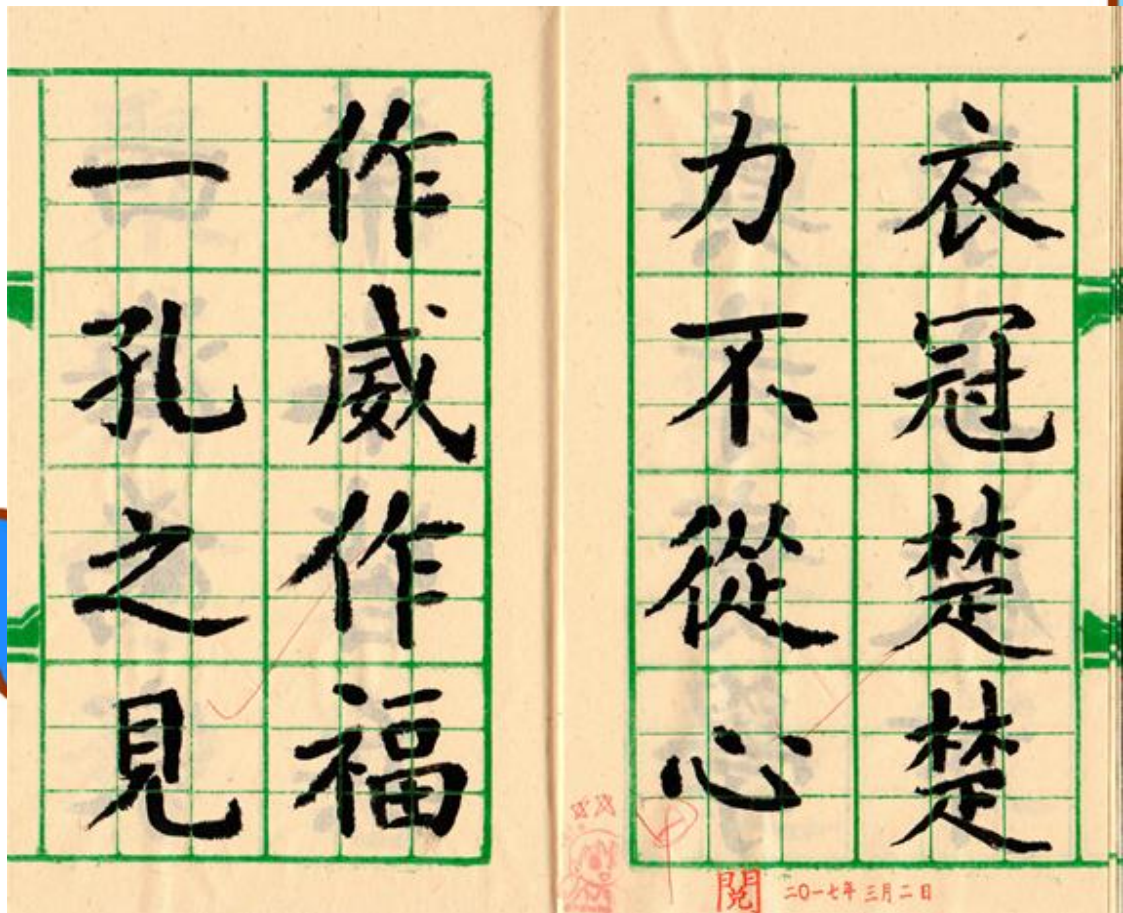 衣冠楚楚
力不從心
作威作福
一孔之見
閱
二〇一七年三月二日